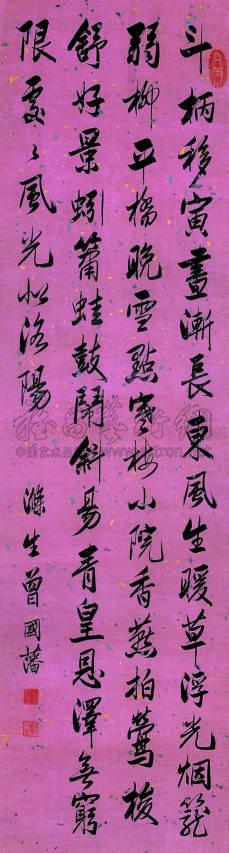 斗柄移寅晝漸長東風生暖草浮光烟籠
弱柳平橋晚雪點寒梅小院香燕拍鶯梭
舒好景蚓簫蛙鼓鬧斜昜青皇恩澤無窮
限處々風光似洛陽
滌生曾國藩